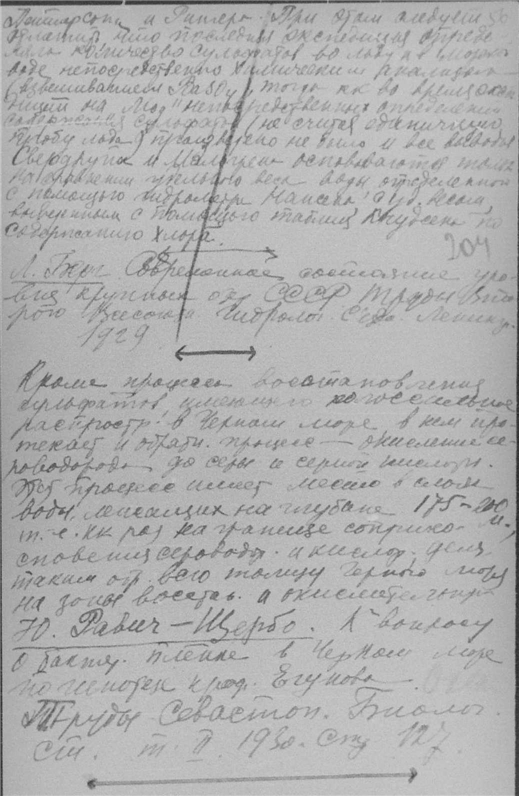 Петтерсона и Рингера. При этом следует
отметить что последняя экспедиция опреде
ляла количество сульфатов во льду и в морской
воде непосредственно химическим анализом
(взвешиванием BaSO4, тогда как во время экспе
диции на "Мод" непосредственных определений
сульфатов (не считая единичную
пробу льда) произведено не было и все выводы
Свердрупа и Мальмгрена основываются только
на сравнении удельного веса воды определенной
с помощью гидрометра Нансена с уд. весом
вычисленным с помощью таблиц Кнудсена по
содержанию хлора.
204
Л. Берг Современное состояние уро-
вня крупных оз. СССР Труды Вто-
рого Всесоюзн. Гидролог. С'езда Ленингр.
1929
Кроме процесса восстановления
сульфатов, имеющего колоссальное
распростр. в Черном море в нем про-
текает и обратн. процесс — окисление се-
роводорода до серы и серной кислоты.
Этот процесс имеет место в слоях
воды, лежащих на глубине 175-200 м.,
т.-е. кк раз на границе соприко-
сновения сероводор. и кислор. деля
таким обр. всю толщу Черного моря
на зоны восстан. и окислительную
Ю. Равич-Щербо. К вопросу
о бактер. пленке в Черном море
по гипотезе проф. Егунова
Труды Севастоп. Биолог.
ст. т. II. 1930. стр 127.